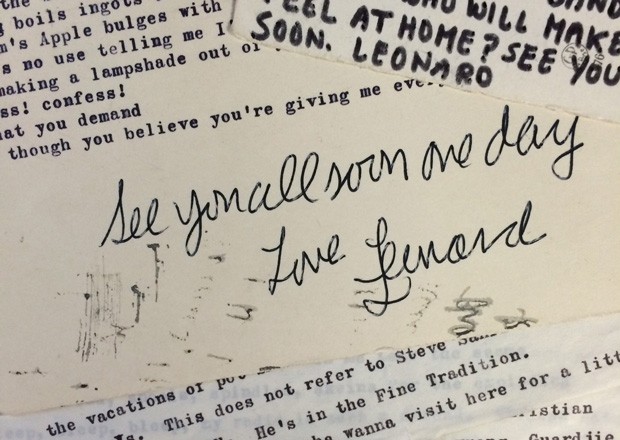 the
boils ingots
's Apple bulges with
s no use telling me I
making a lampshade out of
ss! confess!
at you demand
though you believe you're giving me eve
WHO WILL MAKE
FEEL AT HOME? SEE YOU
SOON. LEONARD
See you all soon one day
Love Leonard
the vacations of
Is. This does not refer to Steve
He's in the Fine Tradition.
wanna visit here for a litt
istian
Guardjie